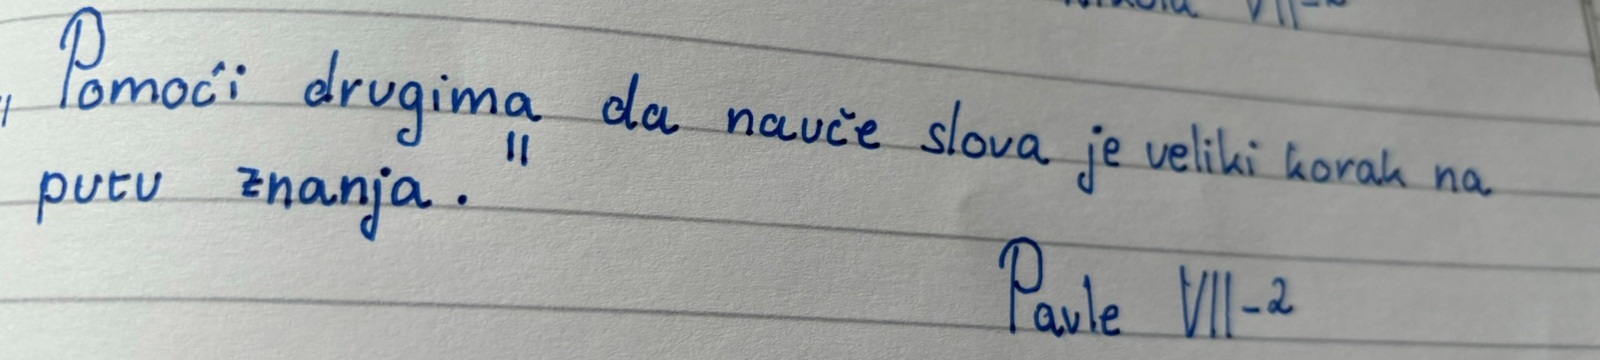 VII-2
„Pomoći drugima da nauče slova je veliki korak na
putu znanja."
Pavle VII-2